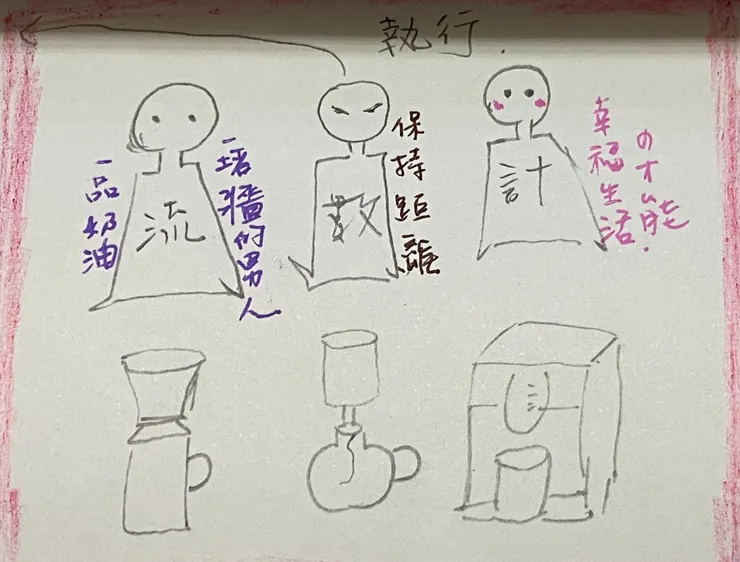 執行.
一品奶油
流
一堵牆的男人
數
保持距離
計
幸福生活
の才能.